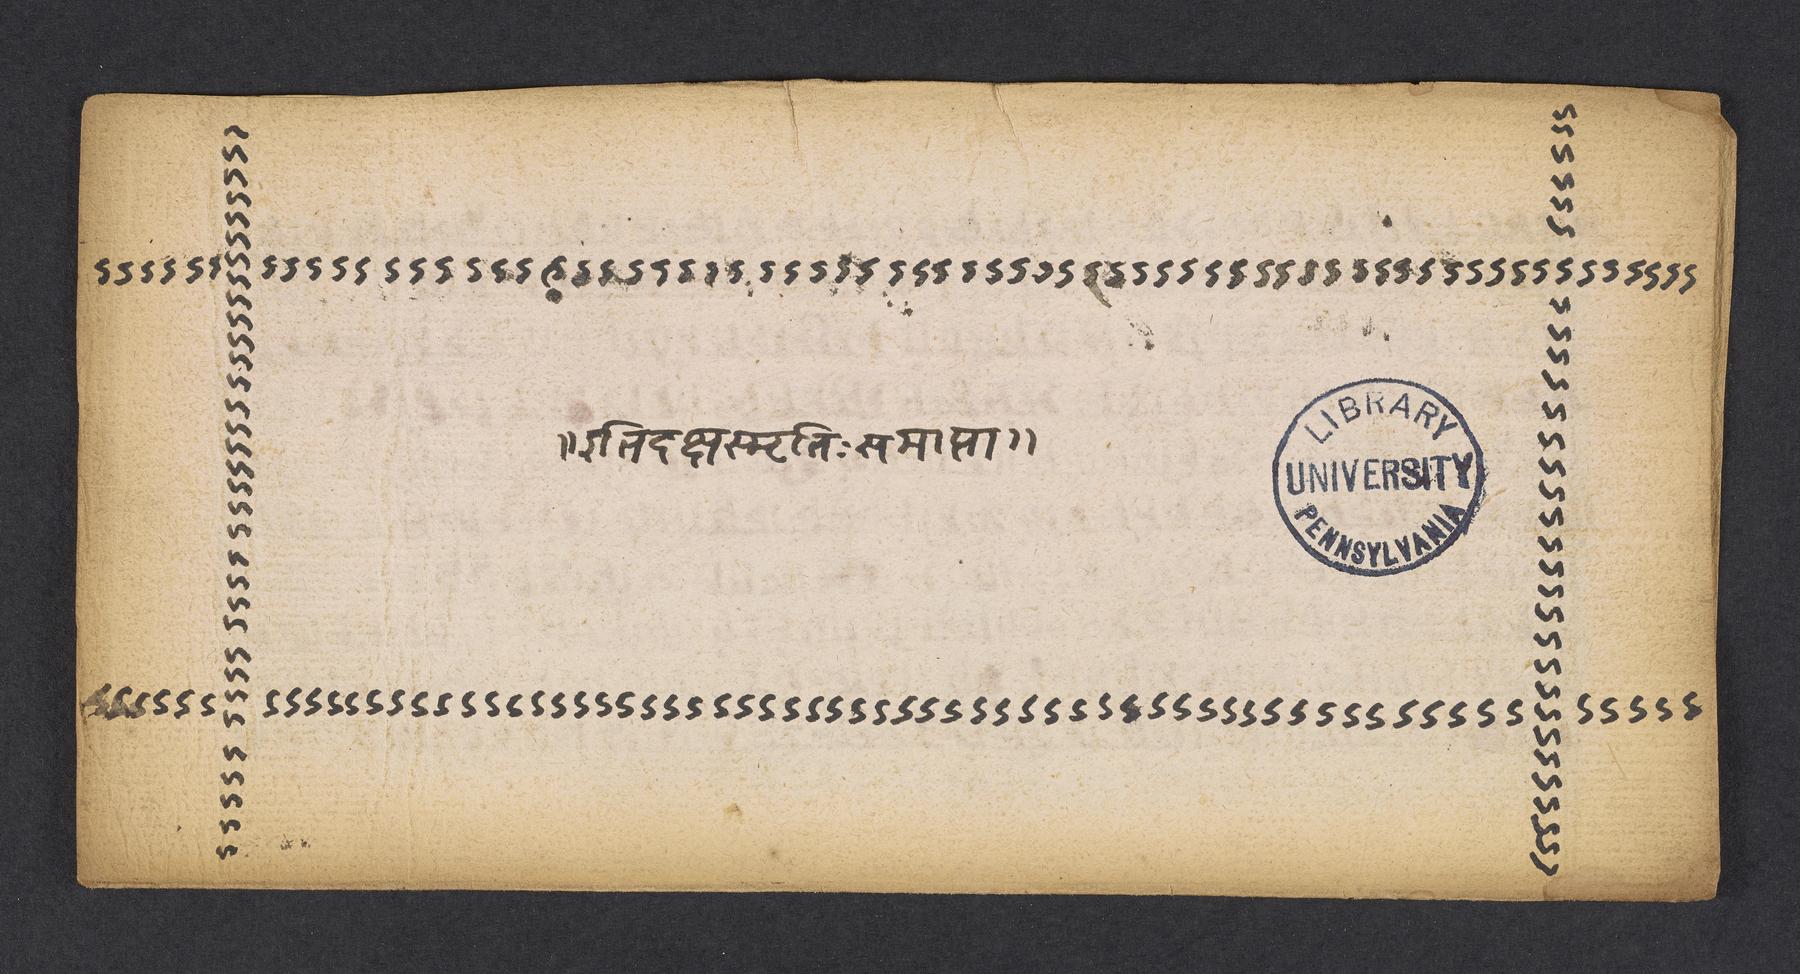 ॥इतिदक्षस्मृतिः समाप्ता॥
LIBRARY
UNIVERSITY
PENNSYLVANIA